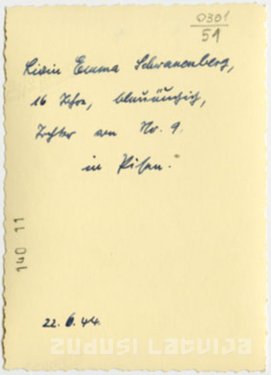 0301
51
Livin Emma Schwanenberg,
16 Jahre, blauäugig,
Tochter von Nr. 9.
in Pilsen.
140 11
22. 6. 44.
zudusi Latvija